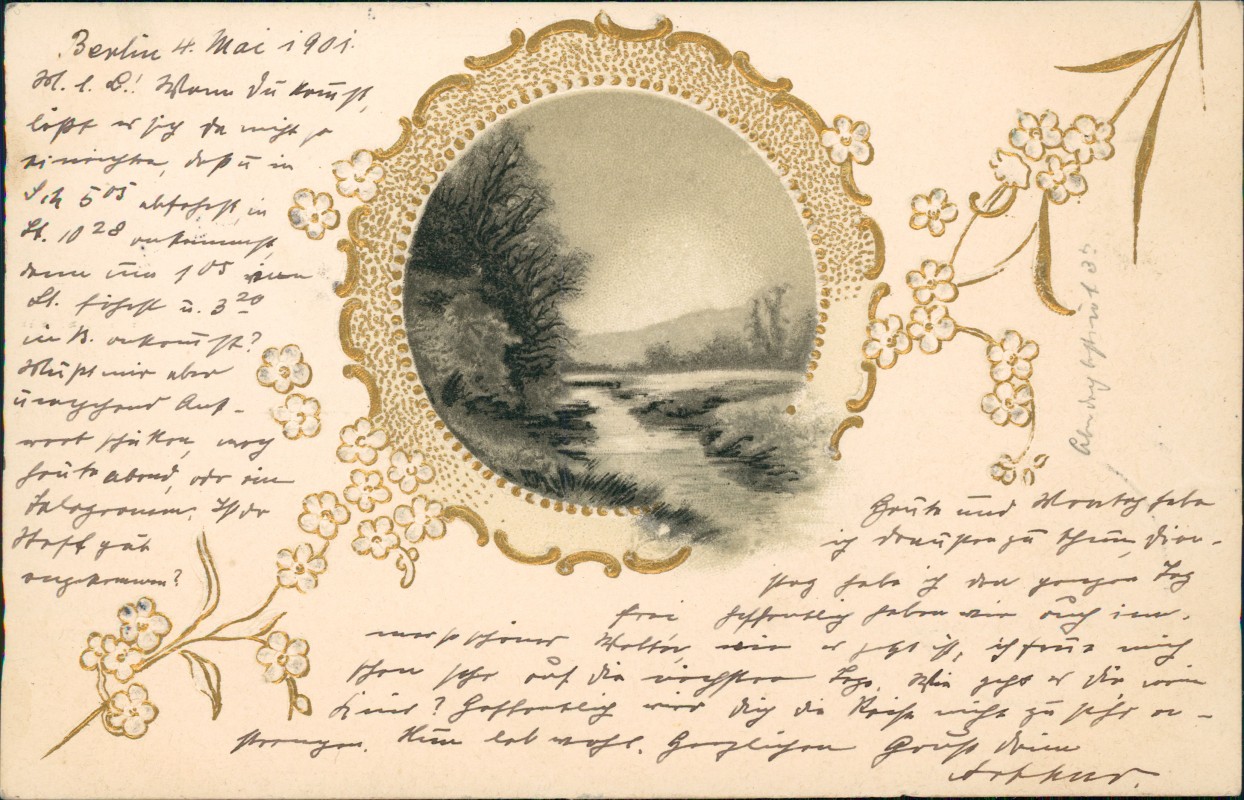 Berlin 4. Mai 1901.
M. l. L.! Wenn du kommst,
läßt es sich da nicht so
einrichten, daß du in
Sch 5⁰⁵ abfährst, in
St. 10²⁸ ankommst,
dann um 1⁰⁵ von
St. fährst u. 3²⁰
in B. ankommst?
Mußt mir aber
umgehend Ant-
wort schicken, noch
heute abend, oder ein
Telegramm. Ist der
Stoff gut
angekommen?
Heute und Montag habe
ich draußen zu thun, Diens-
tag habe ich den ganzen Tag
frei Hoffentlich haben wir auch im-
mer so schönes Wetter, wie es jetzt ist, ich freue mich
schon sehr auf die nächsten Tage. Wie geht es dir mein
Kind? Hoffentlich wird dich die Reise nicht zu sehr an-
strengen. Nun leb wohl. Herzlichen Gruß dein
Arthur.